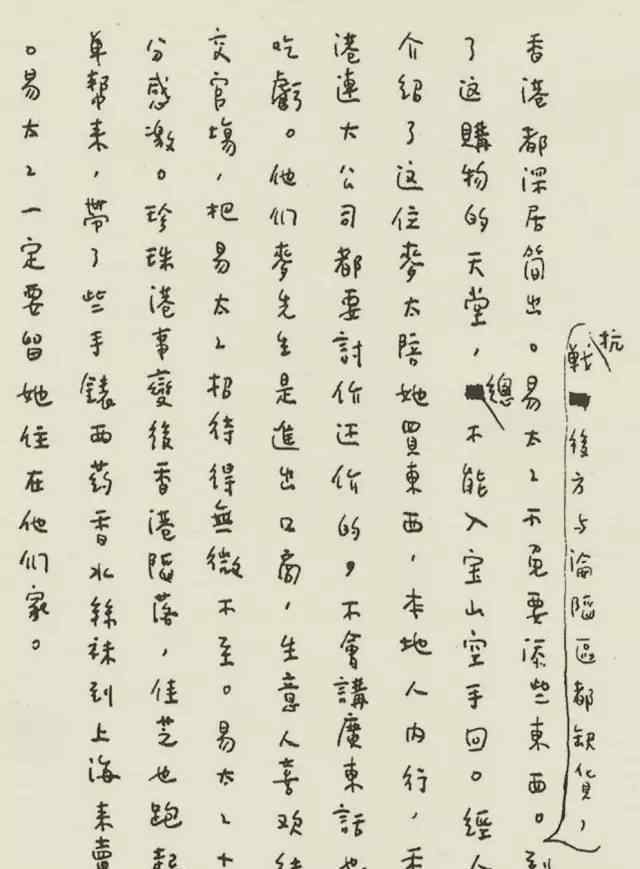 抗戰後方与淪陷區都缺貨，
香港都深居簡出。易太〻不免要添些東西。到
了这購物的天堂，總不能入宝山空手回。經人
介紹了这位麥太陪她買東西，本地人内行，香
港連大公司都要討价还价的，不會講廣東話也
吃虧。他们麥先生是進出口商，生意人喜欢结
交官場，把易太〻招待得無微不至。易太〻十
分感激。珍珠港事變後香港陷落，佳芝也跑起
單幫来，帶了些手錶西药香水絲袜到上海来賣
。易太〻一定要留她住在他们家。